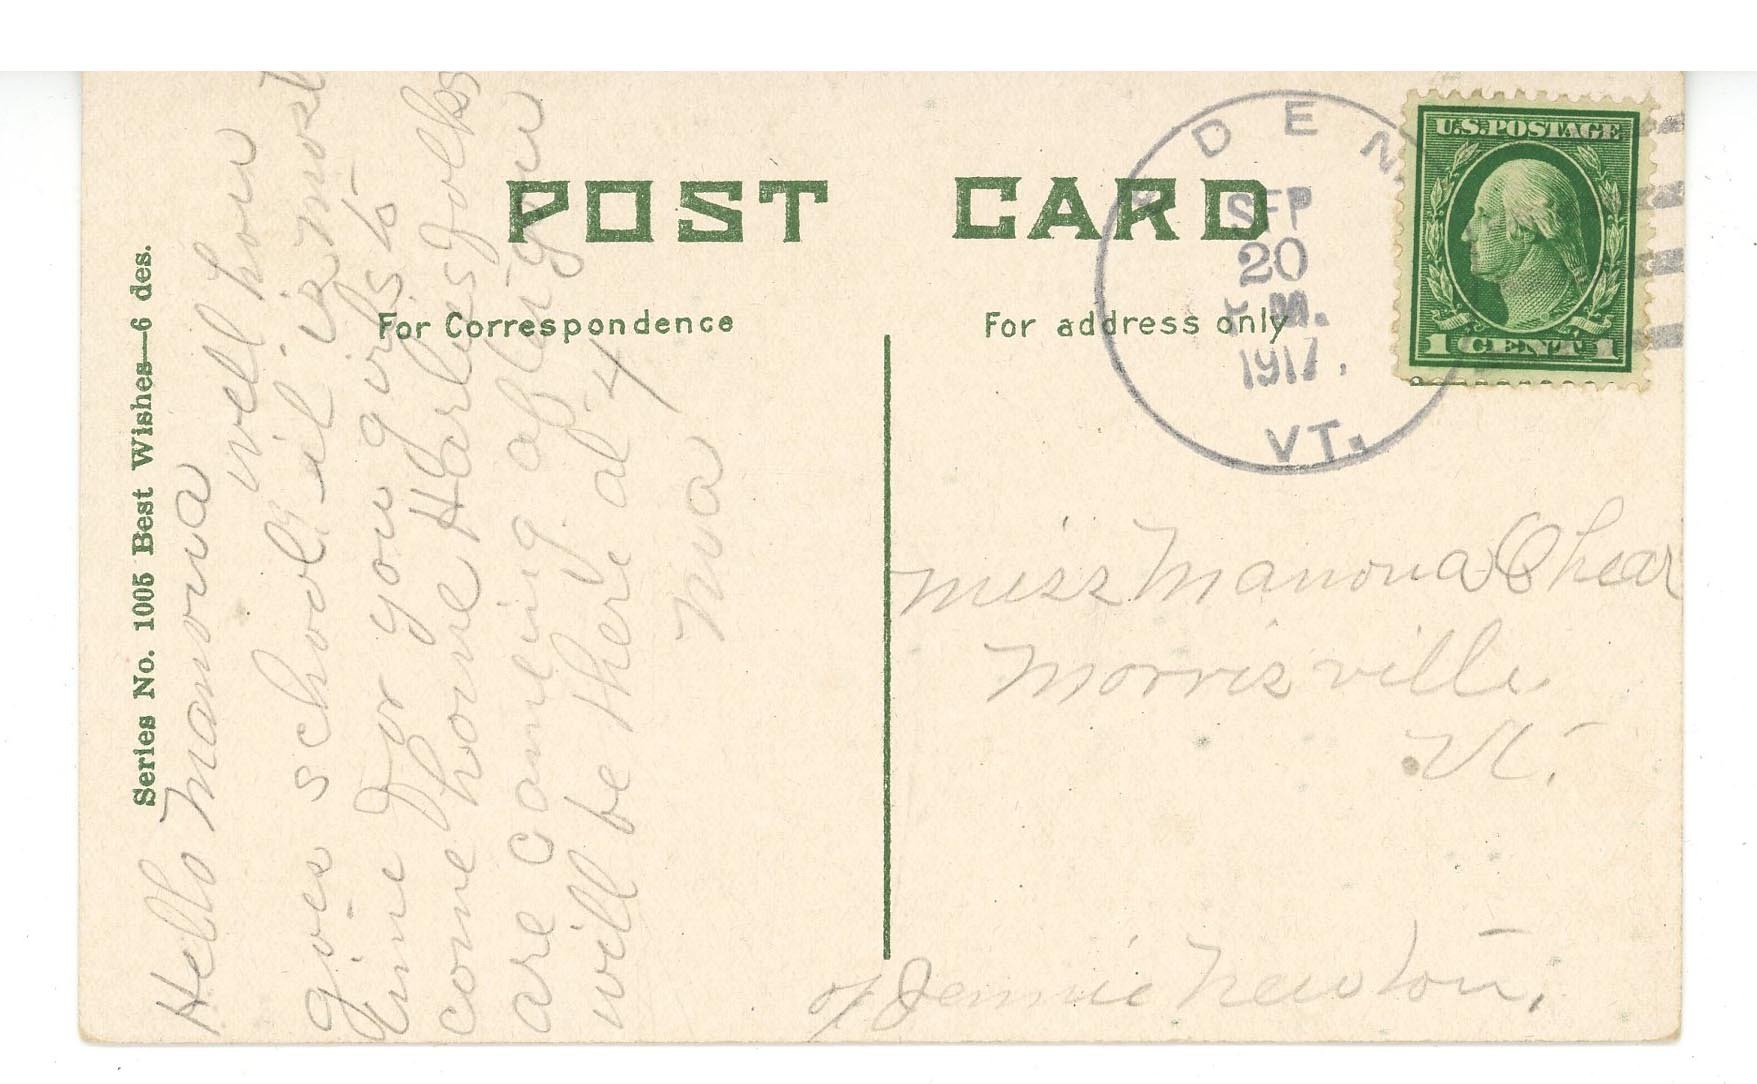 Series No. 1005 Best Wishes—6 des.
POST CARD
For Correspondence
For address only
DEN
SEP
20
M.
1917.
VT.
U.S. POSTAGE
1 CENT 1
Hello Manona
well how
goes school it is most
time for you girls to
come home Harlies folks
are comeing after you
will be there at 4
Ma
miss Manona Shear
Morrisville
Vt.
of Jennie Newton.